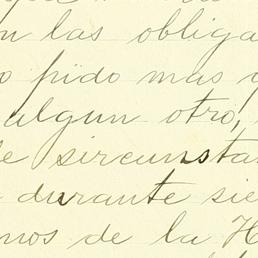 n las obliga
o pido mas
algun otro,
e sircunsta
durante sie
nos de la H